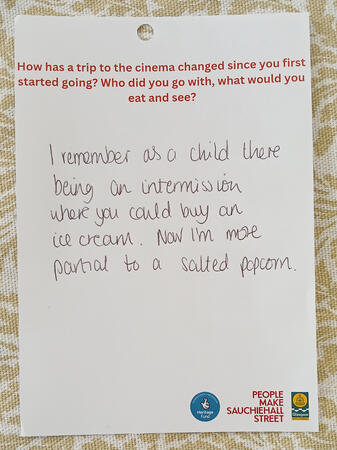 How has a trip to the cinema changed since you first
started going? Who did you go with, what would you
eat and see?
I remember as a child there
being an intermission
where you could buy an
ice cream. Now I'm more
partial to a salted popcorn.
Heritage
Fund
PEOPLE
MAKE
SAUCHIEHALL
STREET
Glasgow